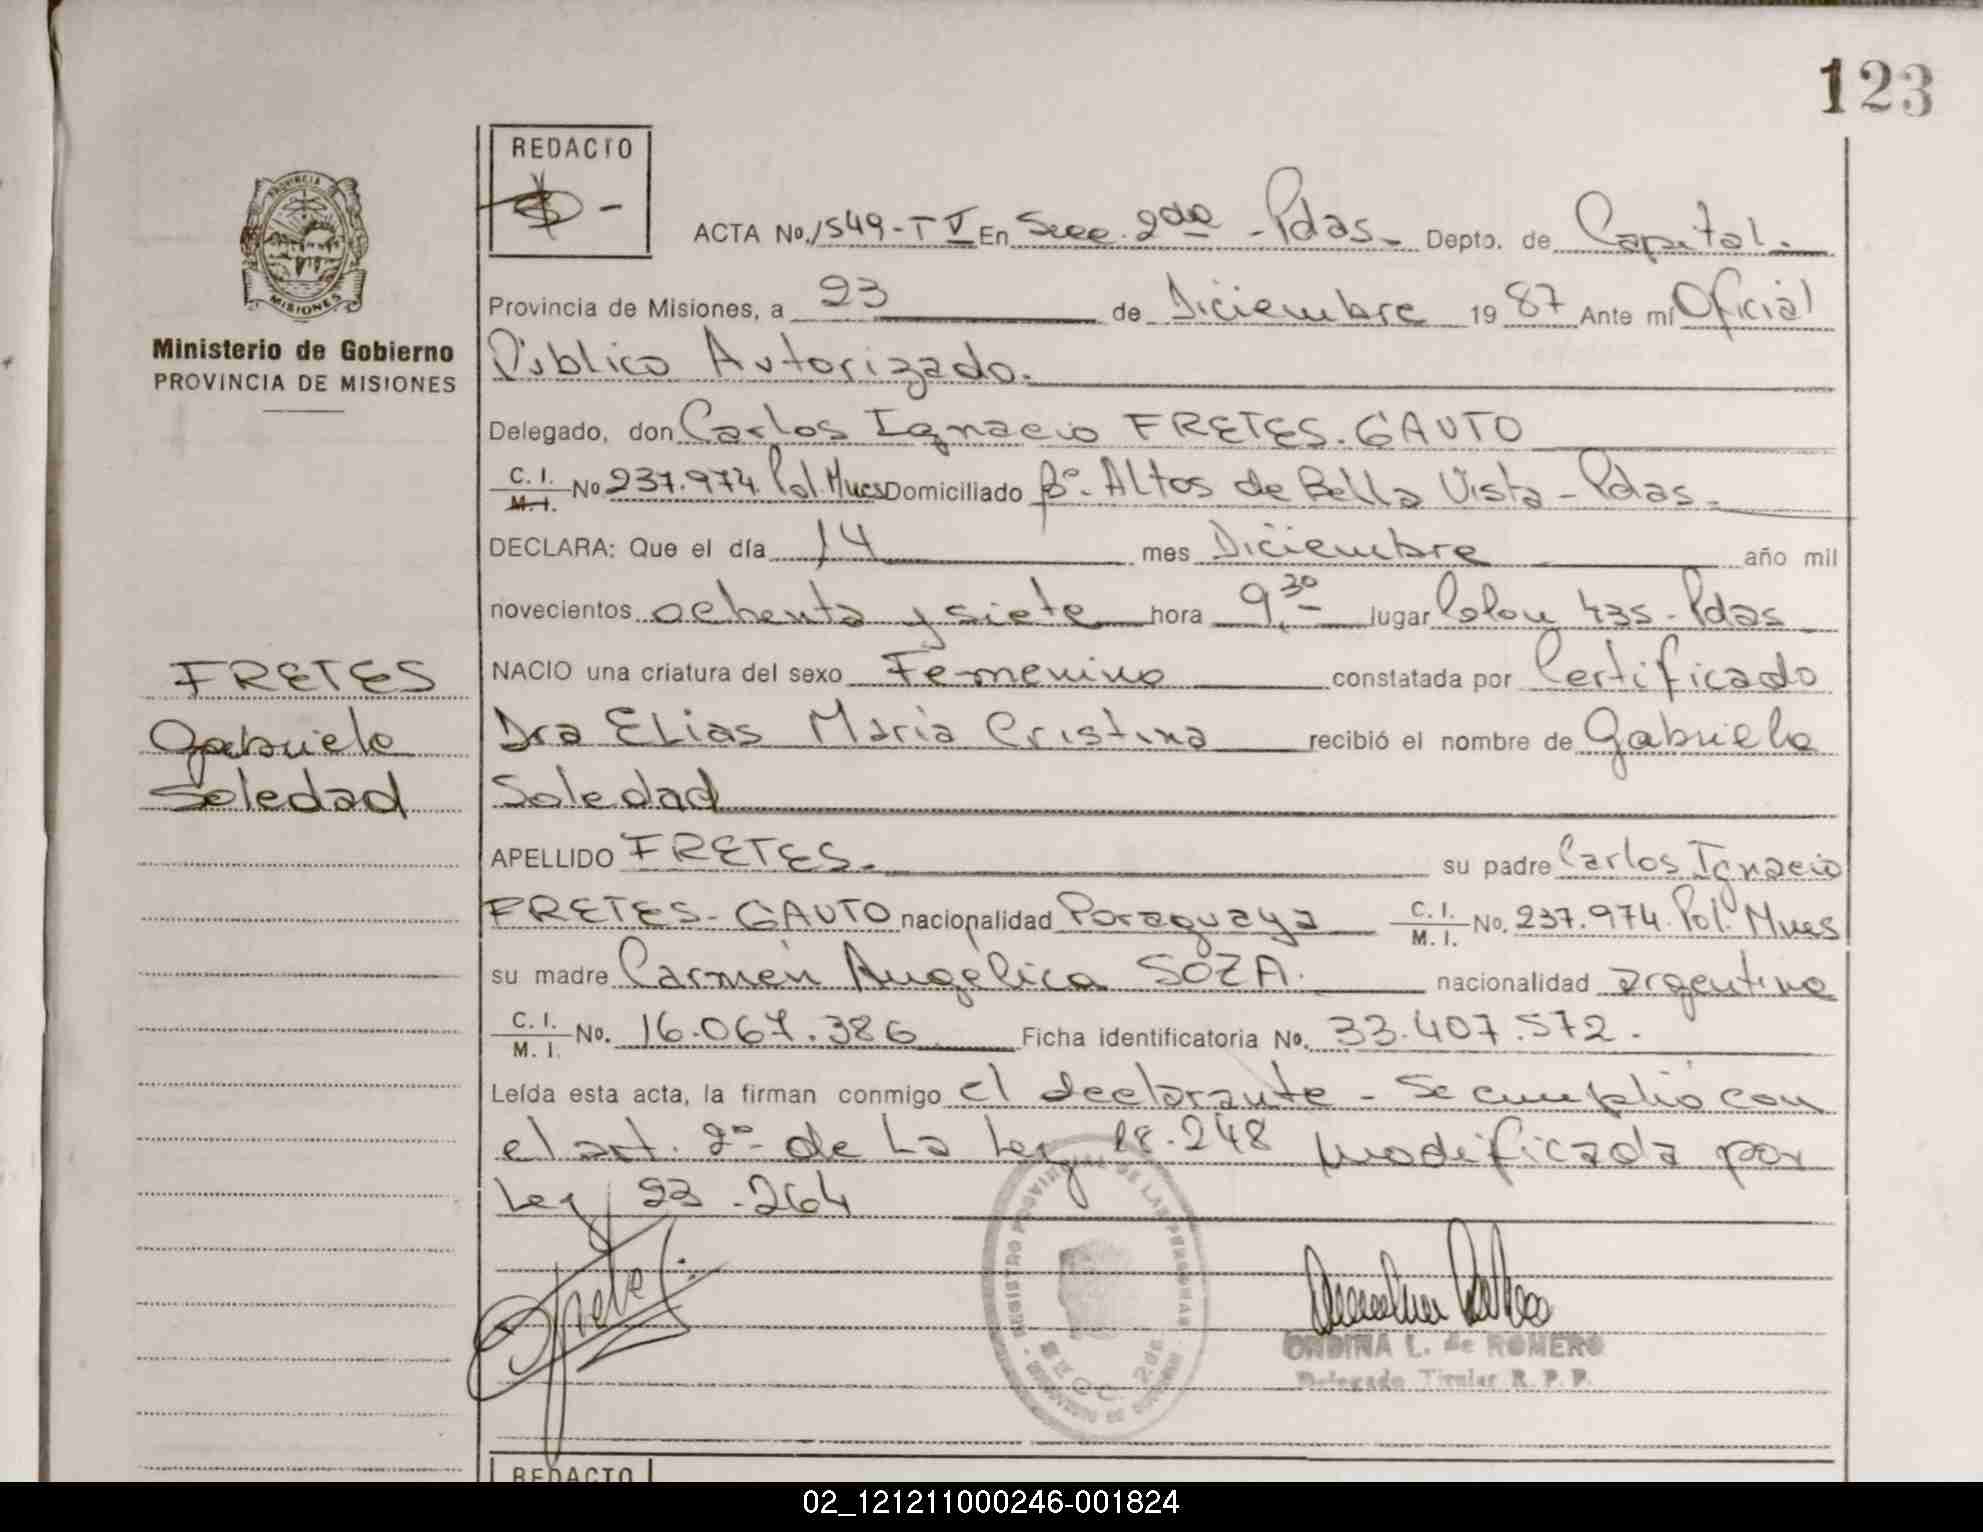 123
REDACTO
ACTA No. 1549 - T V En Secc. 2da - Pdas - Depto. de Capital.
PROVINCIA DE
MISIONES
Ministerio de Gobierno
PROVINCIA DE MISIONES
Provincia de Misiones, a 23 de Diciembre 1987 Ante mí Oficial
Público Autorizado.
Delegado, don Carlos Ignacio FRETES-GAUTO
C. I. M. I. No 237.974 Pol. Mnes Domiciliado Bº. Altos de Bella Vista - Pdas -
DECLARA: Que el día 14 mes Diciembre año mil
novecientos ochenta y siete hora 9,30 lugar Colon 435 - Pdas
NACIO una criatura del sexo Femenino constatada por Certificado
Dra Elias Maria Cristina recibió el nombre de Gabriela
Soledad
FRETES
Gabriela
Soledad
APELLIDO FRETES. su padre Carlos Ignacio
FRETES-GAUTO nacionalidad Paraguaya C. I. M. I. No. 237.974 Pol. Mnes
su madre Carmen Angélica SOZA. nacionalidad argentina
C. I. M. I. No. 16.067.386 Ficha identificatoria No. 33.407.572.
Leída esta acta, la firman conmigo el declarante - Se cumplió con
el art. 2º de La Ley 18.248 modificada por
Ley 23.264
REGISTRO PROVINCIAL DE LAS PERSONAS
SECC. 2da
ONDINA L. de ROMERO
Delegado Titular R. P. P.
REDACTO
02_121211000246-001824